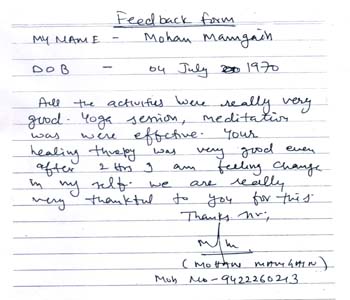 Feedback form
MY NAME - Mohan Mamgain
DOB - 04 July 1970
All the activities were really very
good. Yoga session, meditation
was were effective. Your
healing therapy was very good even
after 2 Hrs I am feeling change
in my self. we are really
very thankful to you for this.
Thanks Mr,
(MOHAN MAMGAIN)
Mob No - 9422260213